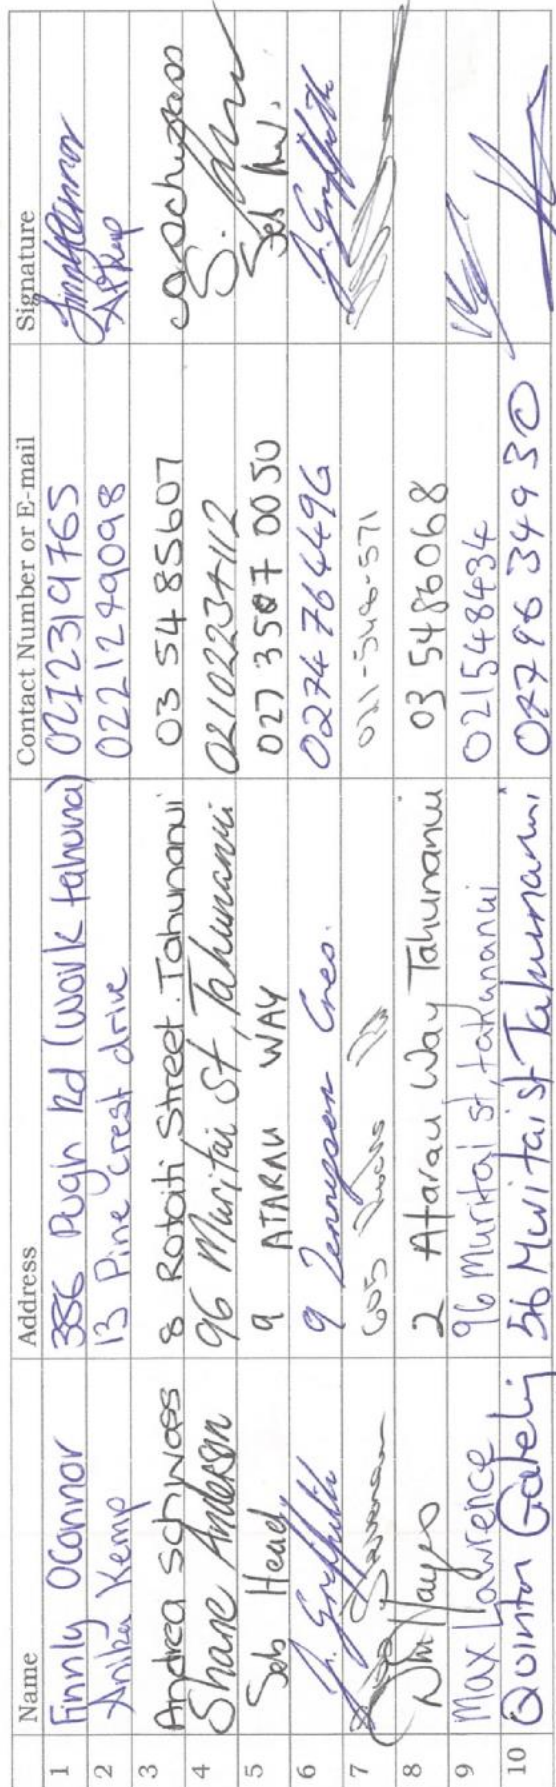 Name Address Contact Number or E-mail Signature
1 Finnly OConnor 386 Pugh Rd (Work tahuna) 0212319765
2 Anika Kemp 13 Pine crest drive 0221249098 AKemp
3 Andrea Schwass 8 Rotoiti Street. Tahunanui 03 5485607 aeschwass
4 Shane Anderson 96 Muritai St, Tahunanui S.
5 Seb Head 9 ATARAU WAY 027 3507 0050 Seb
6 J. Griffith 9 Tennyson Cres. 0274764496 J. Griffith
7 605
8 Hayes 2 Atarau Way Tahunanui 03 5486068
9 Max Lawrence 96 Muritai st, tahunanui 021548434
10 Quinton Gately 56 Muritai St Tahunanui